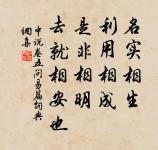 名实相生
利用相成
是非相明
去就相安也
中说卷五问易篇词典
网集